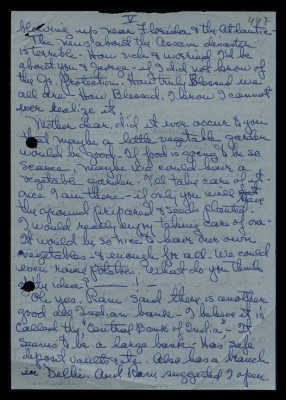 V
447
blowing up near Florida & the Atlantic -
The news about the Assam disaster
is terrible - How sick & worried I'd be
about you & George - if I did not know of
the Gr. Protection. How truly Blessed we
all are - How Blessed, I know I cannot
ever realize it.
Mother dear, did it ever occur to you
that maybe a little vegetable garden
would be good - If food is going to be so
scarce, maybe we could have a
vegetable garden - I'll take care of it -
once I am there - if only you will have
the ground prepared & seeds planted -
I would really enjoy taking care of one -
It would be so nice to have our own
vegetables - & enough for all. We could
even raise potatoes. What do you think
of my idea? - ! -
Oh yes, Ram said there is another
good old Indian bank - I believe it is
called the "Central Bank of India" - It
seems to be a large bank - Has safe
deposit vaults etc. Also has a branch
in Delhi. And Ram suggested I open